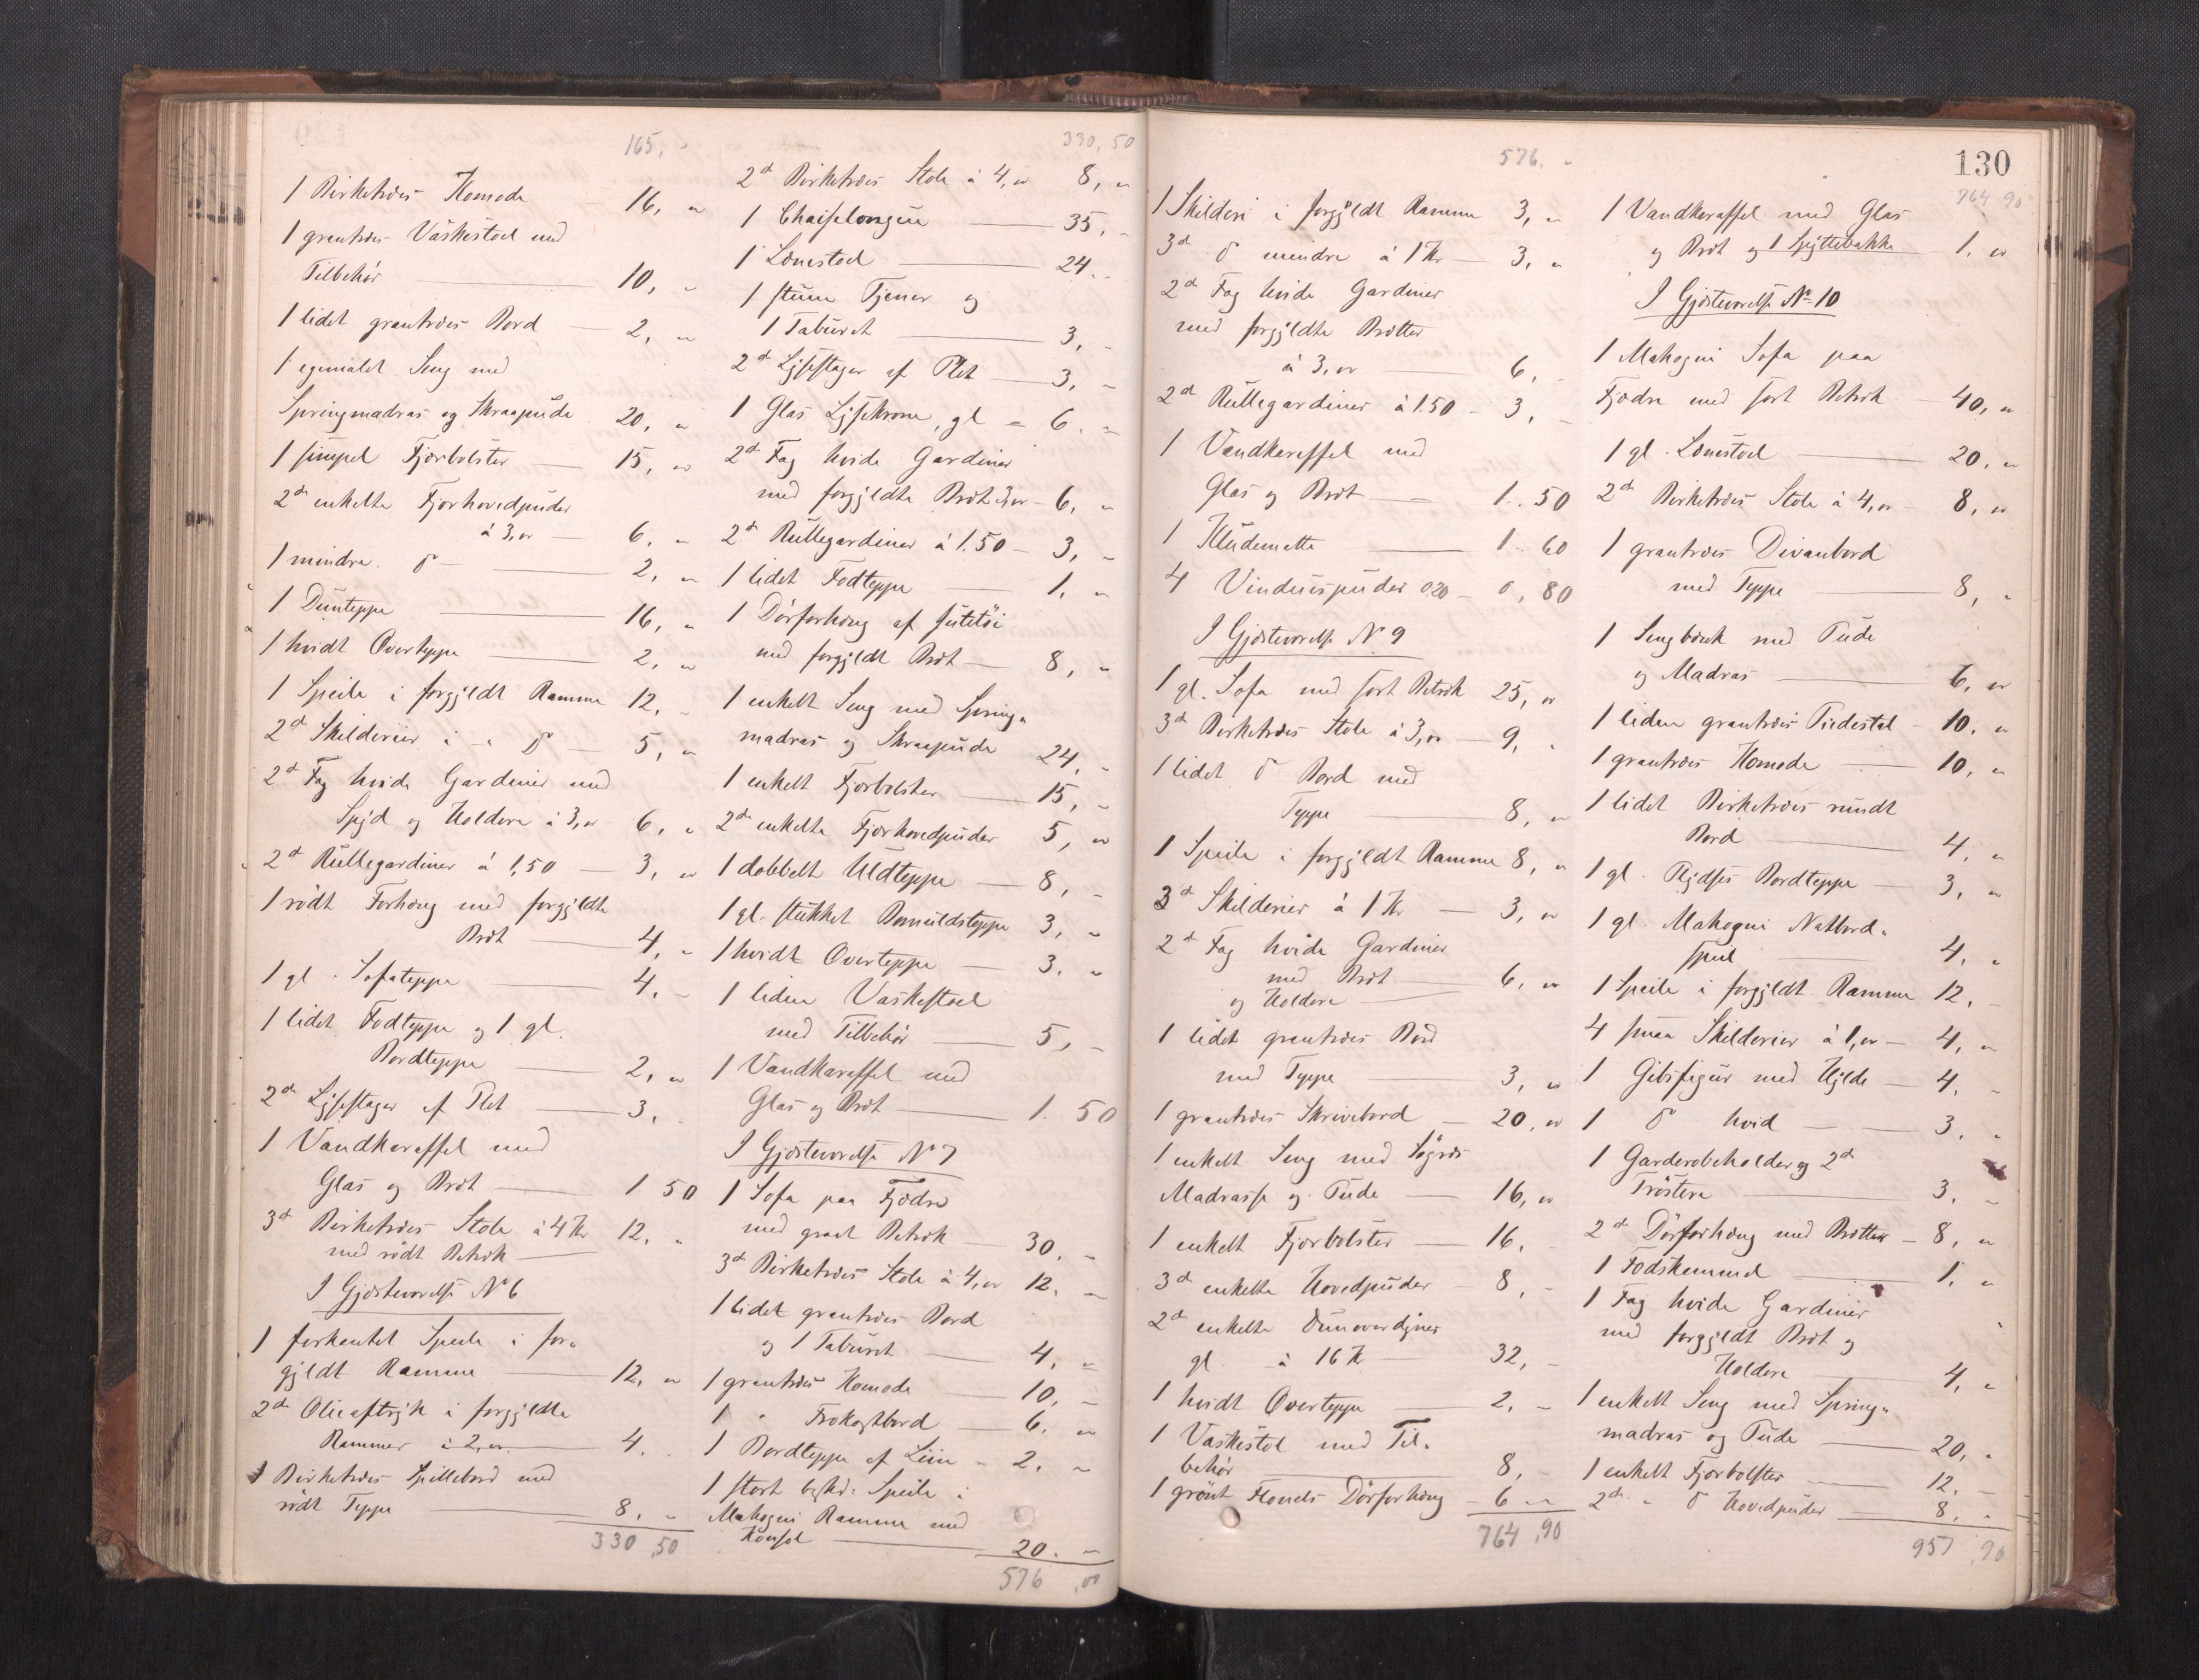 165, "
1 Birketræs Komode 16, "
1 grantræs Vaskestoel med
Tilbehör 10, "
1 lidet grantræs Bord 2, "
1 egemalet Seng med
Springmadras og Skraapude 20, "
1 simpel Fjærbolster 15, "
2de enkelte Fjærhovedpuder
à 3, " 6, "
1 mindre do 2, "
1 Dunteppe 16, "
1 hvidt Overteppe 2, "
1 Speile i forgyldt Ramme 12, "
2de Skilderier i - " do 5, "
2de Fag hvide Gardiner med
Spyd og Holdere à 3, " 6, "
2de Rullegardiner à 1,50 3, "
1 rödt Forhæng med forgyldte
Bræt 4, "
1 gl. Sofateppe 4, "
1 lidet Fodteppe og 1 gl.
Bordteppe 2, "
2de Lysestager af Plet 3, "
1 Vandkaraffel med
Glas og Bræt 1. 50
3de Birketræs Stole à 4 Kr 12, "
med rödt Betræk
I Gjæsteværelse No 6
1 firkantet Speile i for"
gyldt Ramme 12, "
2de Olieaftryk i forgyldte
Rammer à 2, " 4. "
1 Birketræs Spillebord med
rödt Teppe 8, "
330,50
330,50
2de Birketræs Stole à 4, " 8, "
1 Chaiselongue 35, "
1 Lænestoel 24. "
1 stum Tjener og
1 Taburet 3, "
2de Lysestager af Plet 3, "
1 Glas Lysekrone, gl 6. "
2de Fag hvide Gardiner
med forgyldte Bræt à 3, " 6, "
2de Rullegardiner à 1.50 3, "
1 lidet Fodteppe 1, "
1 Dörforhæng af Jutetöi
med forgyldt Bræt 8, "
1 enkelt Seng med Spring"
madras og Skraapude 24, "
1 enkelt Fjærbolster 15, "
2de enkelte Fjærhovedpuder 5, "
1 dobbelt Uldteppe 8, "
1 gl. stukket Bomuldsteppe 3, "
1 hvidt Overteppe 3. "
1 liden Vaskestoel
med Tilbehör 5, "
1 Vandkaraffel med
Glas og Bræt 1. 50
I Gjæsteværelse No 7
1 Sofa paa Fjædre
med graat Betræk 30. "
3de Birketræs Stole à 4, " 12. "
1 lidet grantræs Bord
og 1 Taburet 4, "
1 grantræs Komode 10, "
1 " Frokostbord 6. "
1 Bordteppe af Lin 2. "
1 stort Speile i
Mahogni Ramme med
Konsol 20. "
576,00
576. "
1 Skilderi i forgyldt Ramme 3, "
3de do mindre à 1 Kr 3, "
2de Fag hvide Gardiner
med forgyldte Brætter
à 3, " 6, "
2de Rullegardiner à 1.50 3, "
1 Vandkaraffel med
Glas og Bræt 1. 50
1 Kludematte 1. 60
4 Vinduespuder 0.20 0, 80
I Gjæsteværelse No 9
1 gl. Sofa med sort Betræk 25, "
3de Birketræs Stole à 3, " 9, "
1 lidet do Bord med
Teppe 8, "
1 Speile i forgyldt Ramme 8, "
3de Skilderier à 1 Kr 3, "
2de Fag hvide Gardiner
med Bræt 6, "
og Holdere
1 lidet grantræs Bord
med Teppe 3, "
1 grantræs Skrivebord 20, "
1 enkelt Seng med Sögræs
Madrasse og Pude 16, "
1 enkelt Fjærbolster 16. "
3de enkelte Hovedpuder 8, "
2de enkelte Dunoverdyner
gl. à 16 Kr 32, "
1 hvidt Overteppe 2, "
1 Vaskestol med Til"
behör 8, "
1 grönt Flonels Dörforhæng 6 "
764,90
130
764 90
1 Vandkaraffel med Glas
og Bræt og 1 Spyttebakke 1. "
I Gjæsteværelse No 10
1 Mahogni Sofa paa
Fjædre med sort Betræk 40, "
1 gl. Lænestoel 20. "
2de Birketræs Stole à 4, " 8, "
1 grantræs Divanbord
med Teppe 8, "
1 Sengbænk med Pude
og Madras 6, "
1 liden grantræs Piedestal 10. "
1 grantræs Komode 10, "
1 lidet Birketræs rundt
Bord 4, "
1 gl. Plydses Bordteppe 3, "
1 gl. Mahogni Natbord"
4, "
1 Speile i forgyldt Ramme 12, "
4 smaa Skilderier à 1, " 4, "
1 Gibsfigur med Hylde 4. "
1 do hvid 3. "
1 Garderobeholder og 2de
Træstere 3. "
2de Dörforhæng med Brætter 8, "
1 Fodskammel 1, "
1 Fag hvide Gardiner
med forgyldt Bræt og
Holdere 4, "
1 enkelt Seng med Spring"
madras og Pude 20, "
1 enkelt Fjærbolster 12. "
2de " do Hovedpuder 8, "
957,90